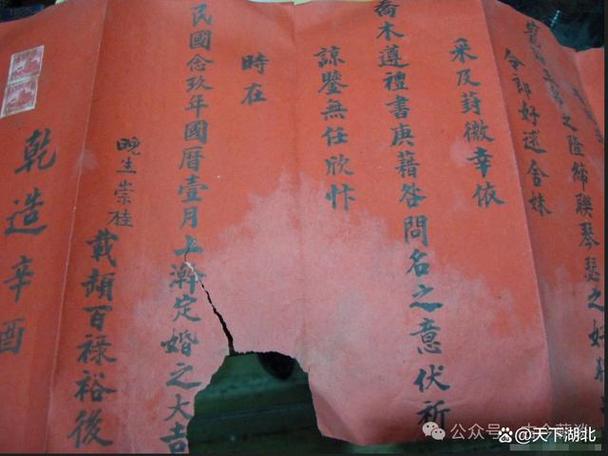 之隆締聯琴瑟之好
令郎好逑舍妹
采及葑徽幸依
喬木遵禮書庚藉荅問名之意伏祈
諒鑒無任欣忭
時在
民國念玖年國曆壹月上澣定婚之大吉
晚生崇桂
百祿裕後
乾造辛酉
公众号
天下湖北